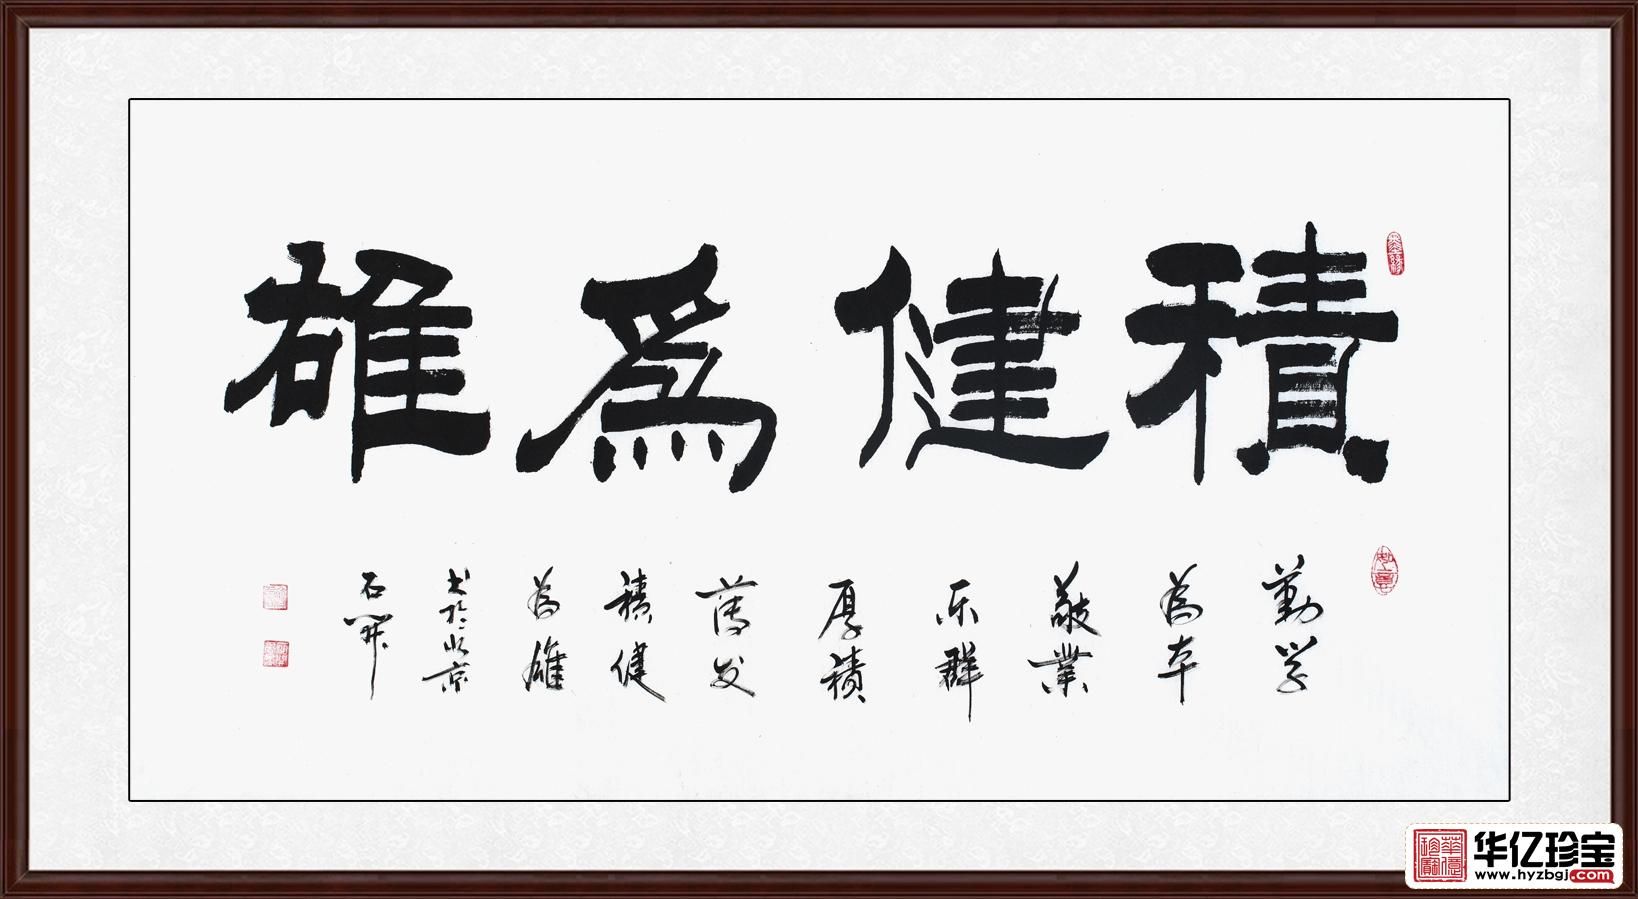 積健為雄
勤学
為本
敬業
乐群
厚積
薄发
積健
為雄
书於北京
石開
华亿珍宝
www.hyzbgj.com